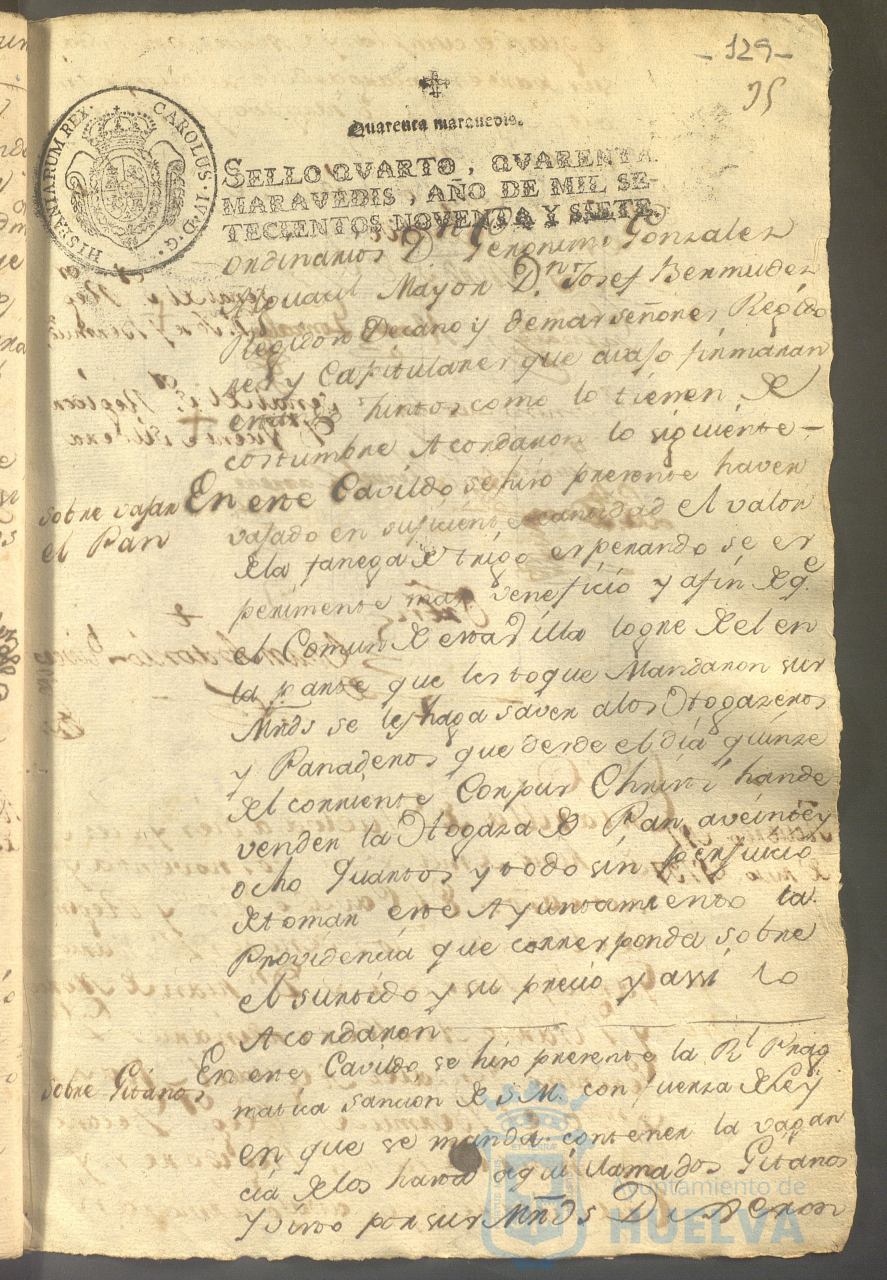 -129-
95
Quarenta maravedis.
CAROLUS·IV·D·G·HISPANIARUM REX·
SELLO QVARTO, QVARENTA
MARAVEDIS, AÑO DE MIL SE-
TECIENTOS NOVENTA Y SIETE.
ordinarios Dn Geronimo Gonzalez
Alguacil Mayor Dn Josef Bermudez
Regidor Decano y demas señores Regido
res y Capitulares que avajo firmaran
juntos como lo tienen de
costumbre Acordaron lo siguiente-
sobre vajar
el Pan
En este Cavildo se hizo presente haver
vajado en suficiente cantidad el valor
de la fanega de trigo esperando se ex
perimente mas veneficio y afin de qe
el Comun de esta Villa logre del en
la parte que les toque Mandaron sus
Mrds se les haga saver alos Hogazeros
y Panaderos que desde el dia quinze
del corriente Corpus Christi hande
vender la Hogaza de Pan aveinte y
ocho quartos y todo sin perjuicio
de tomar este Ayuntamiento la
Providencia que corresponda sobre
el surtido y su precio y assi lo
Acordaron
sobre Gitanos
En este Cavildo se hizo presente la Rl Prag
matica sancion de S M. con fuerza de Ley
en que se manda contener la vagan
cia delos hasta aqui llamados Gitanos
y visto por sus Mrds
Ayuntamiento de
HUELVA